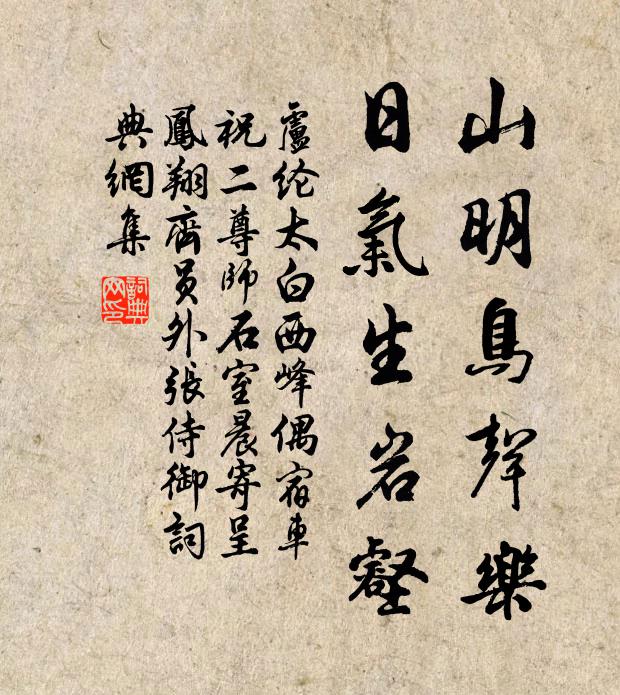 山明鳥聲樂
日氣生岩壑
盧纶太白西峰偶宿車
祝二尊師石室晨寄呈
鳳翔齊员外張侍御詞
典網集
詞典
网印